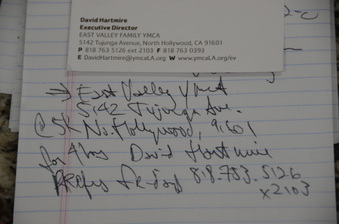 David Hartmire
Executive Director
EAST VALLEY FAMILY YMCA
5142 Tujunga Avenue, North Hollywood, CA 91601
P 818 763 5126 ext 2103 F 818 763 0393
E DavidHartmire@ymcaLA.org W www.ymcaLA.org/ev
→ East Valley YMCA
5142 Tujunga Ave.
No. Hollywood, 91601
David Hartmire
818.753.5126
x2103